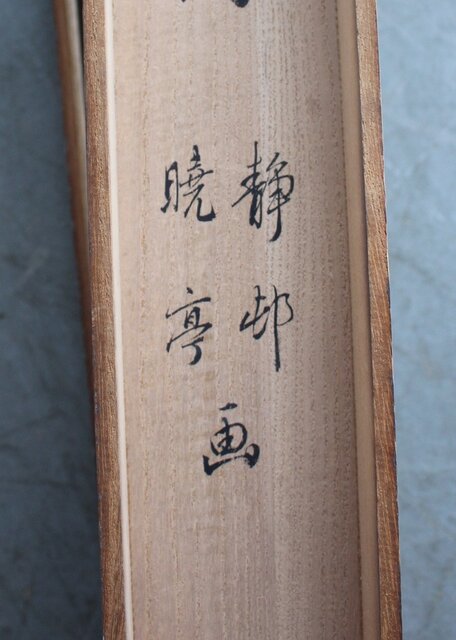 静邨
暁亭
画